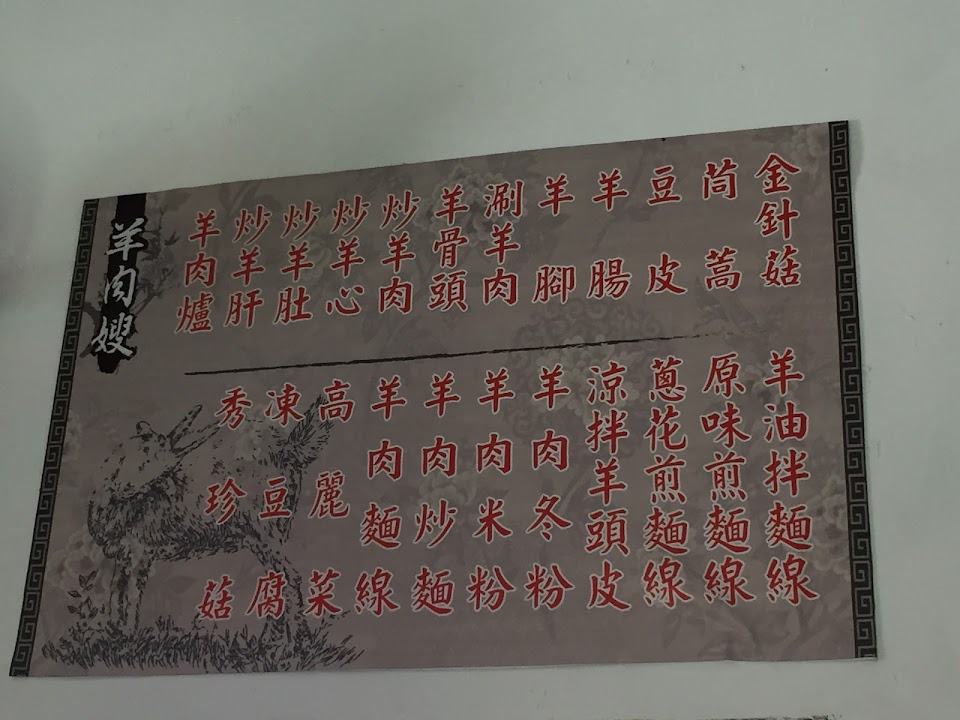 羊肉嫂
羊肉爐
炒羊肝
炒羊肚
炒羊心
炒羊肉
羊骨頭
涮羊肉
羊腳
羊腸
豆皮
茼蒿
金針菇
秀珍菇
凍豆腐
高麗菜
羊肉麵線
羊肉炒麵
羊肉米粉
羊肉冬粉
涼拌羊頭皮
蔥花煎麵線
原味煎麵線
羊油拌麵線